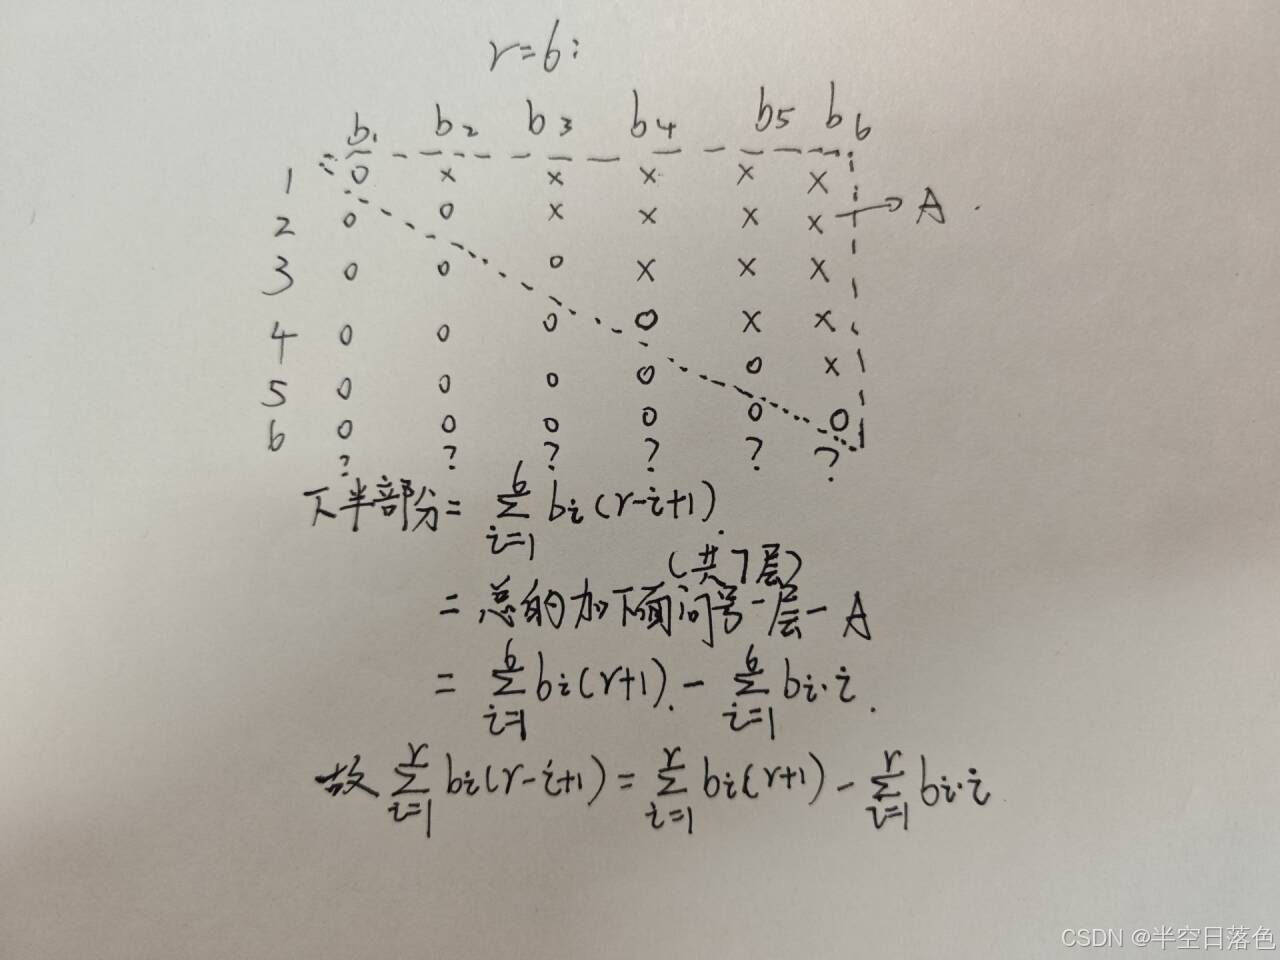 r=6:
b₁ b₂ b₃ b₄ b₅ b₆
1 o x x x x x
2 o o x x x x → A.
3 o o o x x x
4 o o o o x x
5 o o o o o x
6 o o o o o o
? ? ? ? ? ?
下半部分= ∑_{i=1}^{6} bᵢ(r-i+1).
(共7层)
= 总的加下面问号一层-A
= ∑_{i=1}^{6} bᵢ(r+1). - ∑_{i=1}^{6} bᵢ·i.
故 ∑_{i=1}^{r} bᵢ(r-i+1) = ∑_{i=1}^{r} bᵢ(r+1) - ∑_{i=1}^{r} bᵢ·i
CSDN @半空日落色